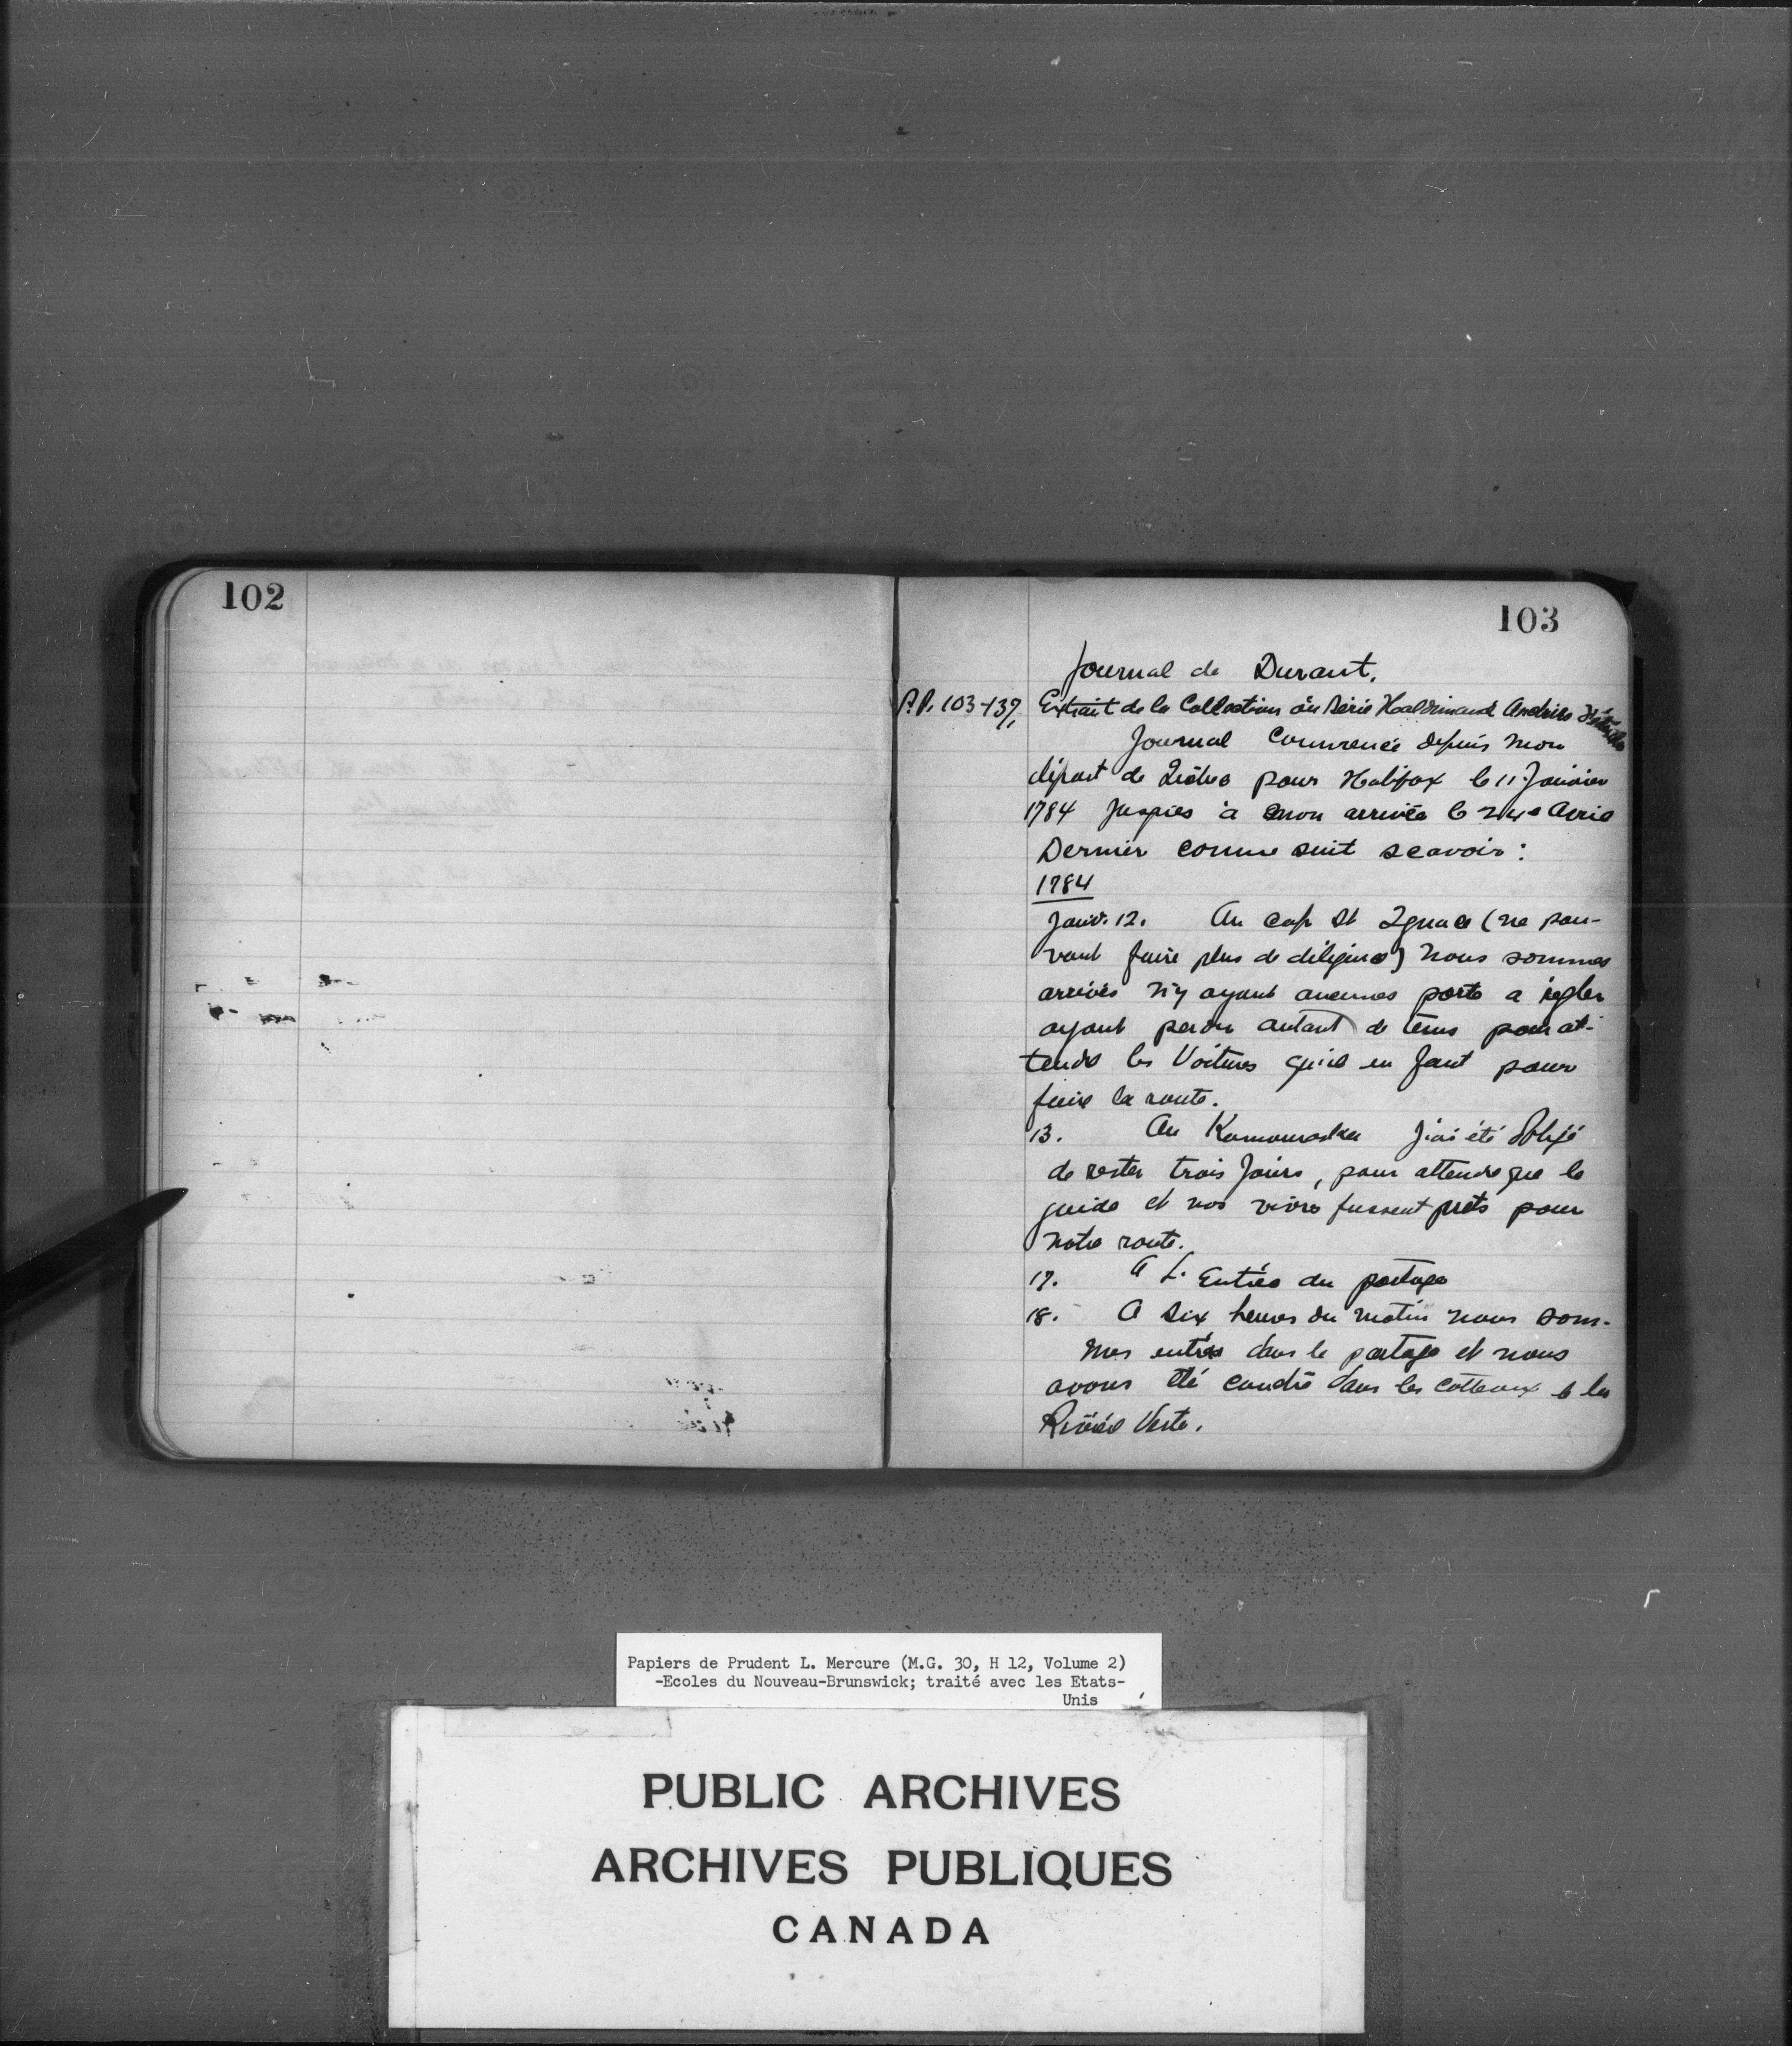 102
103
Journal de Durant.
P.P. 103-137, Extrait de la Collection ou Série Haldimand Archives
Journal Commencé depuis mon
départ de Québec pour Halifax le 11 Janvier
1784 Jusques à mon arrivée le 24e Avril
Dernier comme suit scavoir :
1784
Janv. 12. Au cap St Ignace (ne pou-
vant faire plus de diligence) nous sommes
arrivés n'y ayant aucunes poste a régler
ayant perdu autant de tems pour at-
tendre les Voitures qu'il en faut pour
faire la route.
13. Au Kamouraska J'ai été obligé
de rester trois Jours, pour attendre que le
guide et nos vivres fussent prêts pour
notre route.
17. A L'Entrée du portage
18. A Six heures du matin nous som-
mes entrés dans le portage et nous
avons été couché dans les cotteaux de la
Rivière Verte.
Papiers de Prudent L. Mercure (M.G. 30, H 12, Volume 2)
-Ecoles du Nouveau-Brunswick; traité avec les Etats-
Unis
PUBLIC ARCHIVES
ARCHIVES PUBLIQUES
CANADA